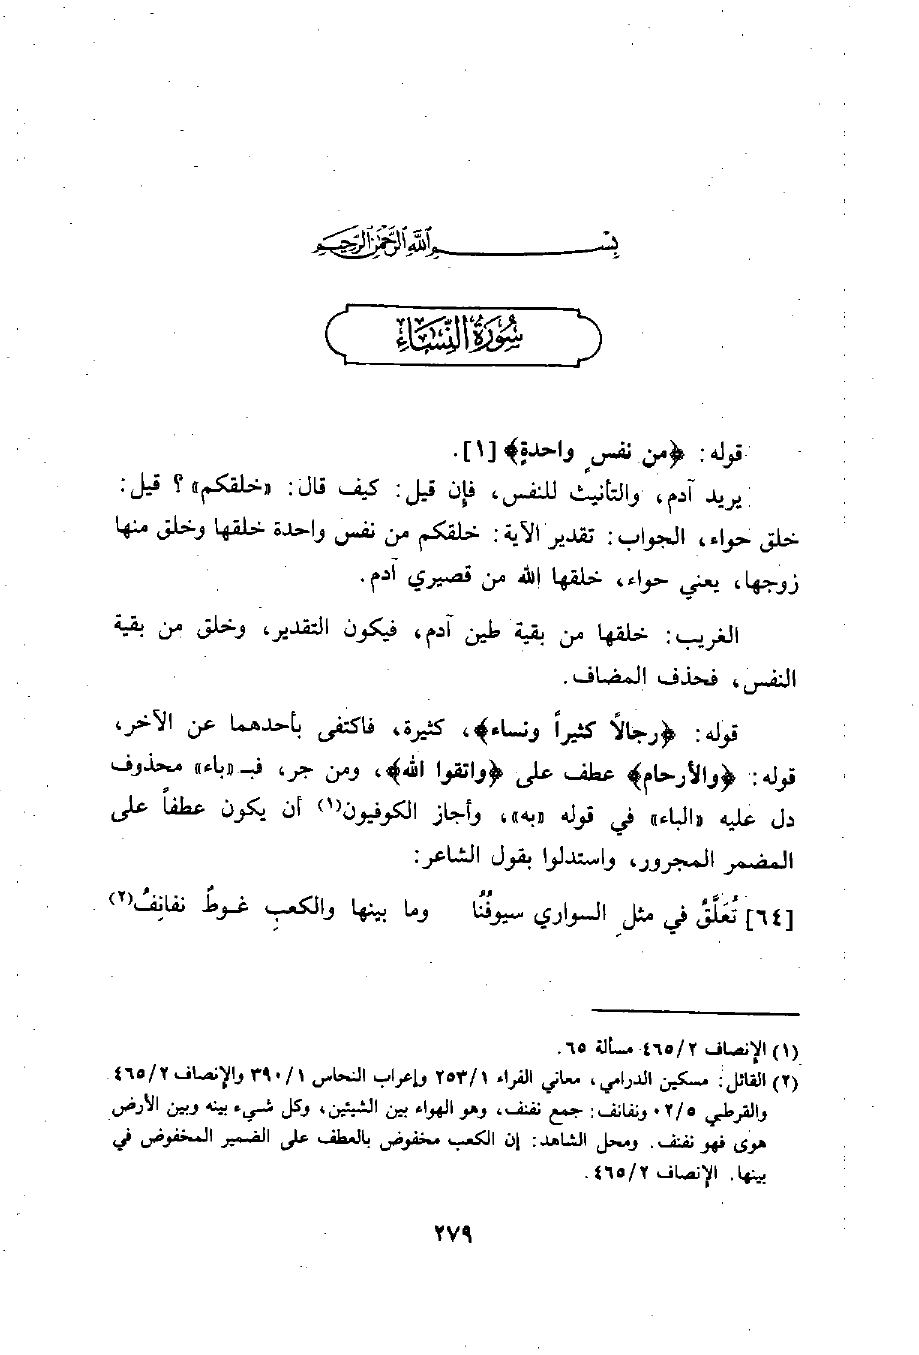 بسم الله الرحمن الرحيم
سورة النساء
قوله: ﴿من نفسٍ واحدةٍ﴾ [١].
يريد آدم، والتأنيث للنفس، فإن قيل: كيف قال: «خلقكم»؟ قيل:
خلق حواء، الجواب: تقدير الآية: خلقكم من نفس واحدة خلقها وخلق منها
زوجها، يعني حواء، خلقها الله من قصيري آدم.
الغريب: خلقها من بقية طين آدم، فيكون التقدير، وخلق من بقية
النفس، فحذف المضاف.
قوله: ﴿رجالاً كثيراً ونساء﴾، كثيرة، فاكتفى بأحدهما عن الآخر،
قوله: ﴿والأرحام﴾ عطف على ﴿واتقوا الله﴾، ومن جر، فبـ «باء» محذوف
دل عليه «الباء» في قوله «به»، وأجاز الكوفيون(١) أن يكون عطفاً على
المضمر المجرور، واستدلوا بقول الشاعر:
[٦٤] تُعَلَّقُ في مثلِ السواري سيوفُنُا وما بينها والكعبِ غوطٌ نفانِفُ(٢)
(١) الإنصاف ٤٦٥/٢ مسألة ٦٥.
(٢) القائل: مسكين الدرامي، معاني الفراء ٢٥٣/١ وإعراب النحاس ٣٩٠/١ والإنصاف ٤٦٥/٢
والقرطبي ٠٢/٥ ونفانف: جمع نفنف، وهو الهواء بين الشيئين، وكل شيء بينه وبين الأرض
هوى فهو نفنف. ومحل الشاهد: إن الكعب مخفوض بالعطف على الضمير المخفوض في
بينها. الإنصاف ٤٦٥/٢.
٢٧٩